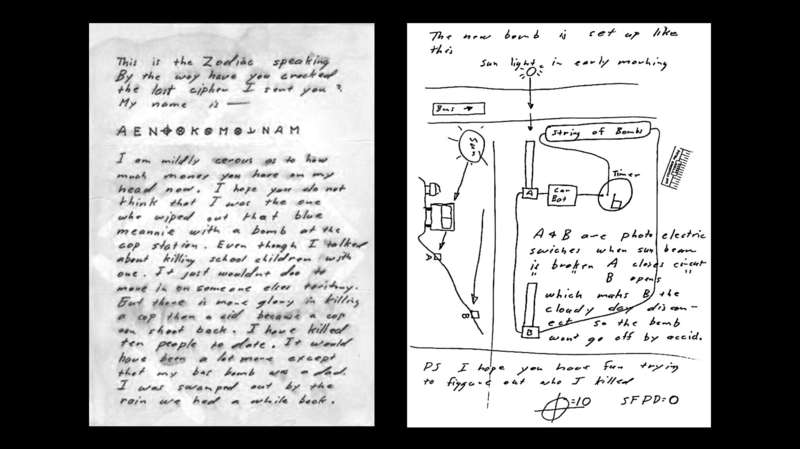 This is the Zodiac speaking
By the way have you cracked
the last cipher I sent you?
My name is —
A E N ⌖ ⊗ K ⊗ M ⊗ ⅃ N A M
I am mildly cerous as to how
much money you have on my
head now. I hope you do not
think that I was the one
who wiped out that blue
meannie with a bomb at the
cop station. Even though I talked
about killing school children with
one. It just wouldnt doo to
move in on someone elses teritory.
But there is more glory in killing
a cop than a cid because a cop
can shoot back. I have killed
ten people to date. It would
have been a lot more except
that my bus bomb was a dud.
I was swamped out by the
rain we had a while back.
The new bomb is set up like
this
sun light in early morning
Bus →
Sun
String of Bombs
Timer
A
Car
Bat
A & B are photo electric
swiches when sun beam
is broken A closes circut
B opens "
which maks B the
cloudy day discon-
ect so the bomb
wont go off by accid.
A
B
B
PS I hope you have fun trying
to figgure out who I killed
⌖=10 SFPD=0